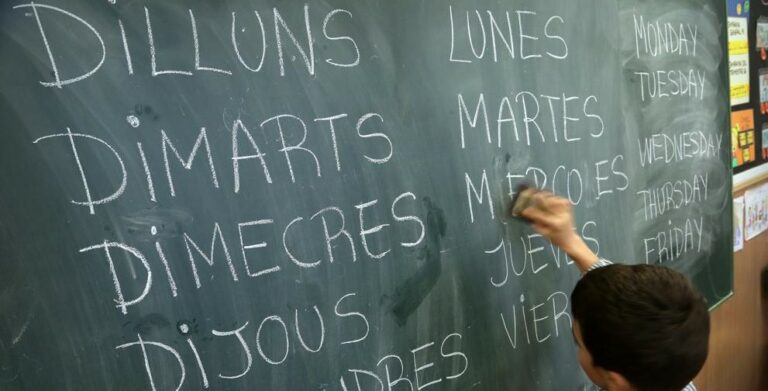 DILLUNS
DIMARTS
DIMECRES
DIJOUS
DRES
LUNES
MARTES
MIERCOLES
JUEVES
VIER
MONDAY
TUESDAY
WEDNESDAY
THURSDAY
FRIDAY